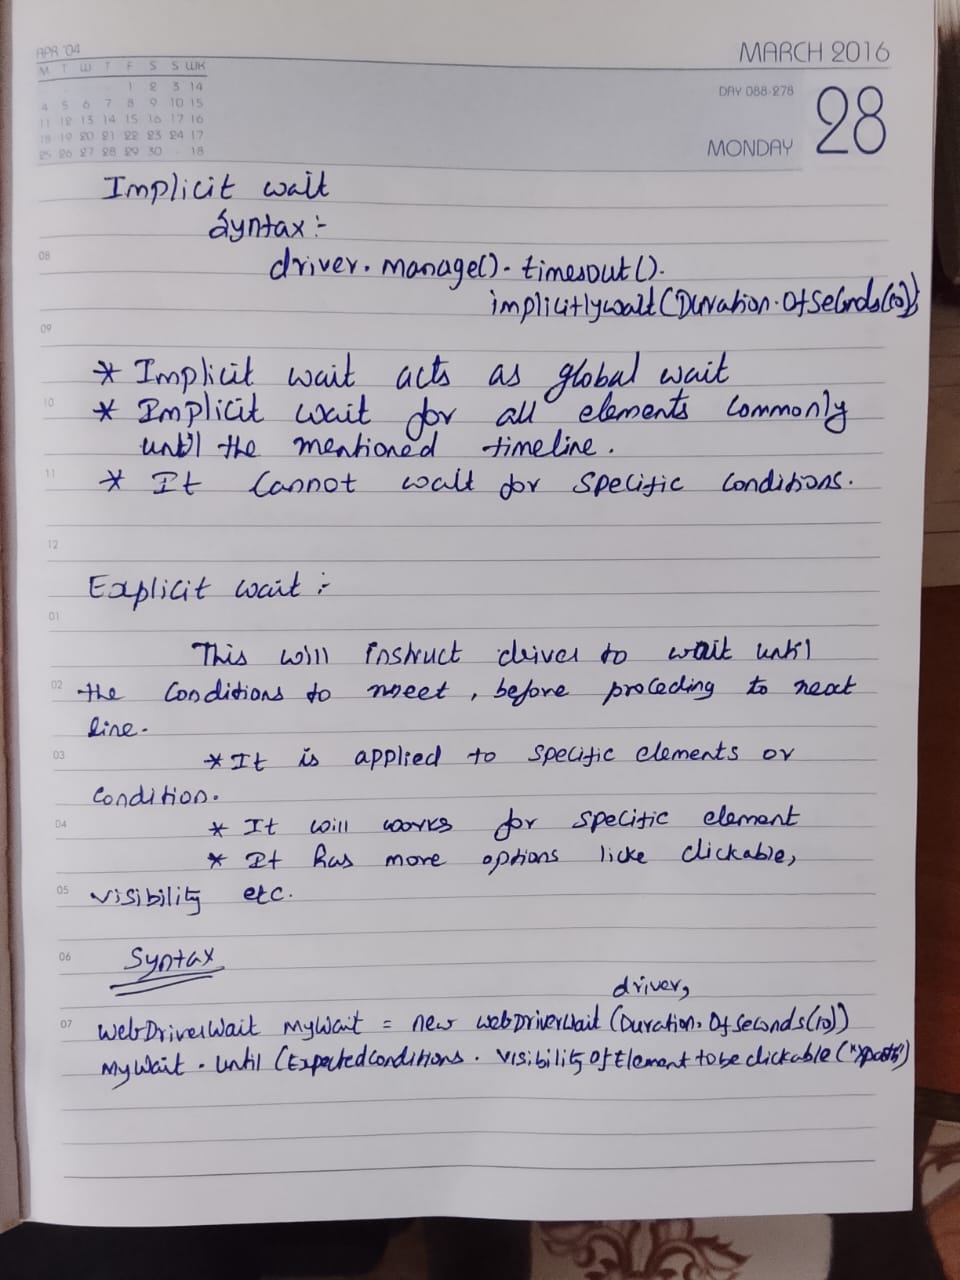 APR '04
M T W T F S S WK
1 2 3 14
4 5 6 7 8 9 10 15
11 12 13 14 15 16 17 16
18 19 20 21 22 23 24 17
25 26 27 28 29 30 18
MARCH 2016
DAY 088-278
28
MONDAY
Implicit wait
Syntax :-
08
driver. manage(). timesout().
implicitlywait (Duration.OfSeconds(10))
09
* Implicit wait acts as global wait
10
* Implicit wait for all elements commonly
until the mentioned timeline.
11
* It Cannot wait for specific conditions.
12
Explicit wait :-
01
This will instruct driver to wait until
02
the conditions to meet, before proceding to next
line.
03
* It is applied to specific elements or
condition.
04
* It will works for specific element
* It has more options licke clickable,
05
visibility etc.
06
Syntax
driver,
07
WebDriverWait MyWait = new WebDriverWait (Duration. Of Seconds(10))
MyWait . until (Expectedconditions . visibility of Element to be clickable (